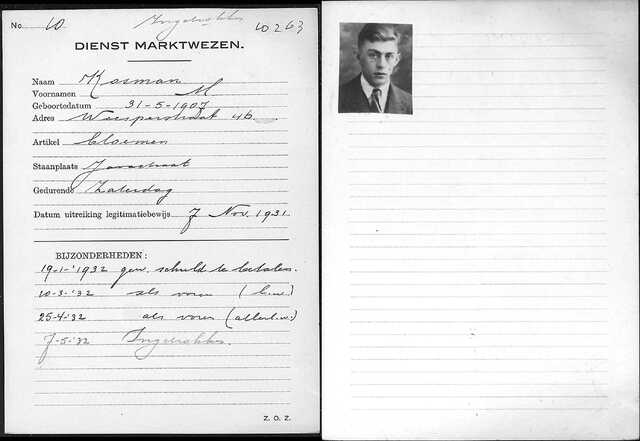 No. 10 Ingetrokken 10263
DIENST MARKTWEZEN.
Naam Kosman
Voornamen M
Geboortedatum 31-5-1907
Adres Weesperstraat 46
Artikel bloemen
Staanplaats Javastraat
Gedurende Zaterdag
Datum uitreiking legitimatiebewijs 7 Nov. 1931.
BIJZONDERHEDEN:
19-1-'1932 gew. schuld te betalen.
10-3-'32 als voren (l.w.)
25-4-'32 als voren (allerl.w.)
7-5-'32 Ingetrokken.
Z. O. Z.